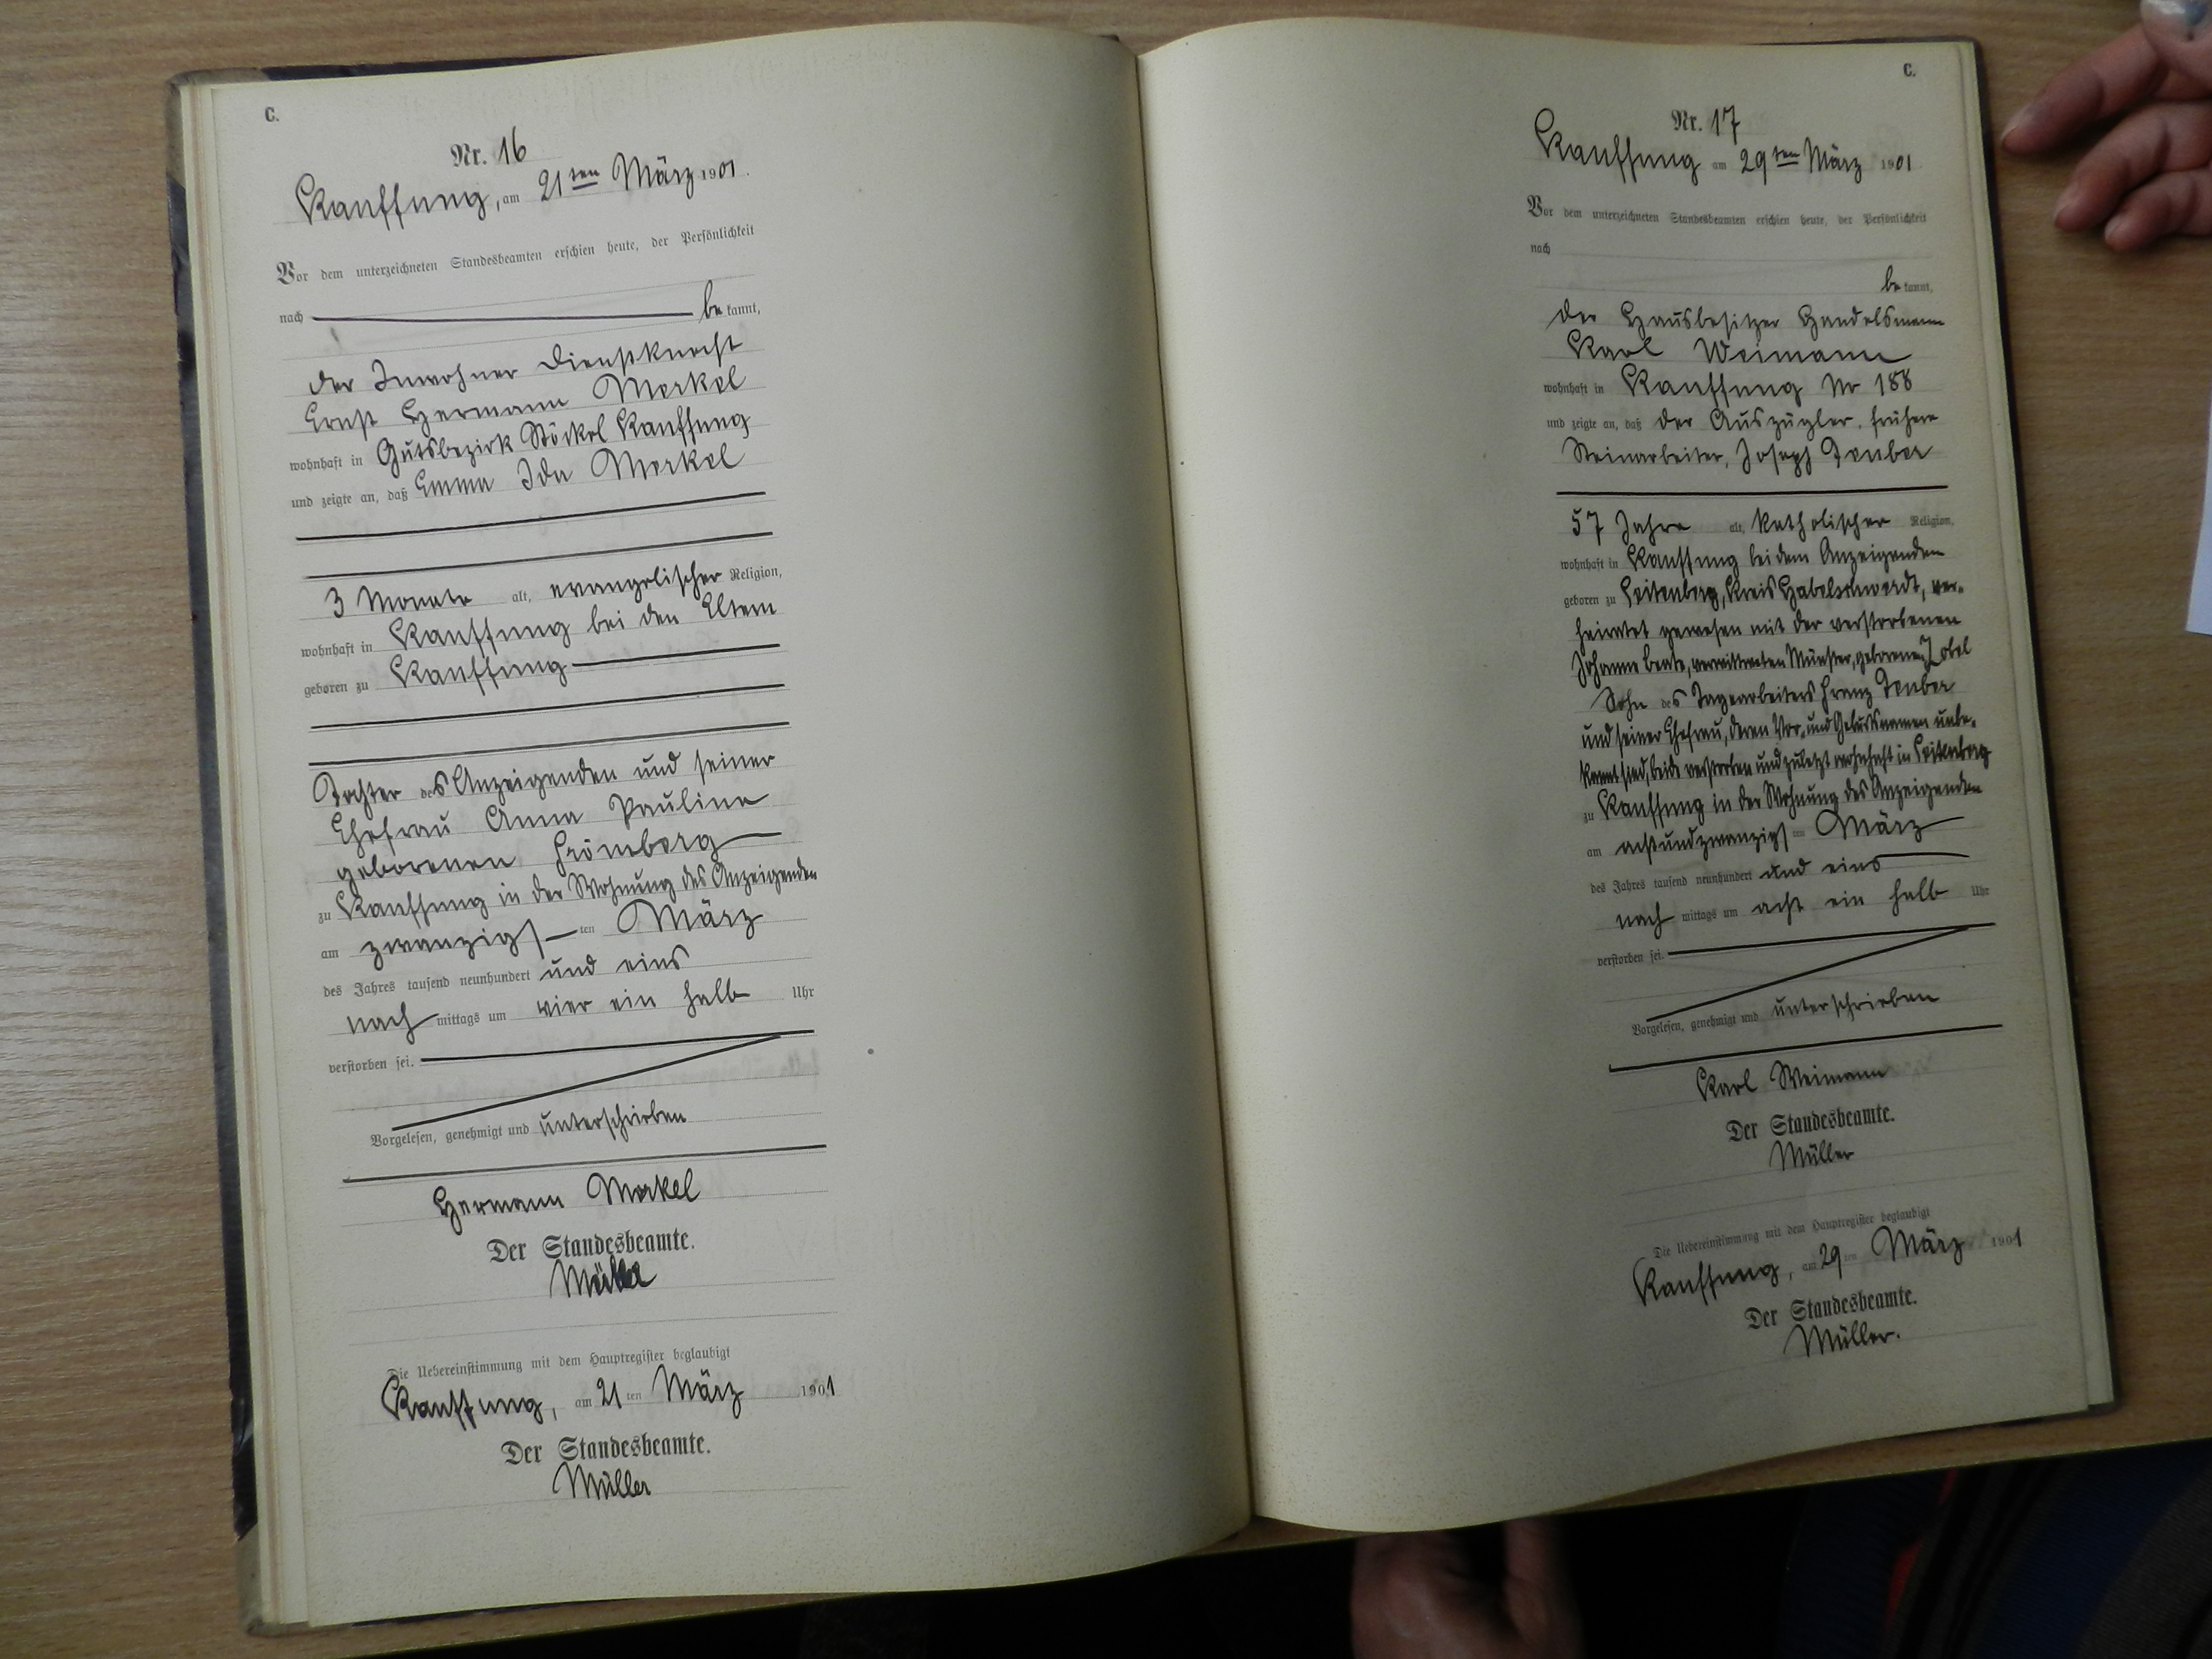 C.
Nr. 16
Kauffung, am 21ten März 1901.
Vor dem unterzeichneten Standesbeamten erschien heute, der Persönlichkeit
nach be kannt,
der Inwohner Dienstknecht
Ernst Hermann Merkel
wohnhaft in Gutsbezirk Stöckel Kauffung
und zeigte an, daß Emma Ida Merkel
3 Monate alt, evangelischer Religion,
wohnhaft in Kauffung bei den Eltern
geboren zu Kauffung
Tochter des Anzeigenden und seiner
Ehefrau Anna Pauline
geborenen Frömberg
zu Kauffung in der Wohnung des Anzeigenden
am zwanzigsten März
des Jahres tausend neunhundert und eins
nach mittags um vier ein halb Uhr
verstorben sei.
Vorgelesen, genehmigt und unterschrieben
Hermann Merkel
Der Standesbeamte.
Müller
Die Uebereinstimmung mit dem Hauptregister beglaubigt
Kauffung, am 21 ten März 1901
Der Standesbeamte.
Müller
C.
Nr. 17
Kauffung am 29ten März 1901
Vor dem unterzeichneten Standesbeamten erschien heute, der Persönlichkeit
nach
be kannt,
der Hausbesitzer Handelsmann
Karl Weimann
wohnhaft in Kauffung Nr 188
und zeigte an, daß der Auszügler, früher
Steinarbeiter, Joseph Teuber
57 Jahre alt, katholischer Religion,
wohnhaft in Kauffung bei dem Anzeigenden
geboren zu Seitenberg, Kreis Habelschwerdt, ver-
heiratet gewesen mit der verstorbenen
Johanne Beate, verwittweten Münster, geborenen Zobel
Sohn des Tagearbeiters Franz Teuber
und seiner Ehefrau, deren Vor- und Geburtsnamen unbe-
kannt sind, beide verstorben und zuletzt wohnhaft in Seitenberg
zu Kauffung in der Wohnung des Anzeigenden
am achtundzwanzigsten März
des Jahres tausend neunhundert und eins
nach mittags um acht ein halb Uhr
verstorben sei.
Vorgelesen, genehmigt und unterschrieben
Karl Weimann
Der Standesbeamte.
Müller
Die Uebereinstimmung mit dem Hauptregister beglaubigt
Kauffung, am 29 ten März 1901
Der Standesbeamte.
Müller.